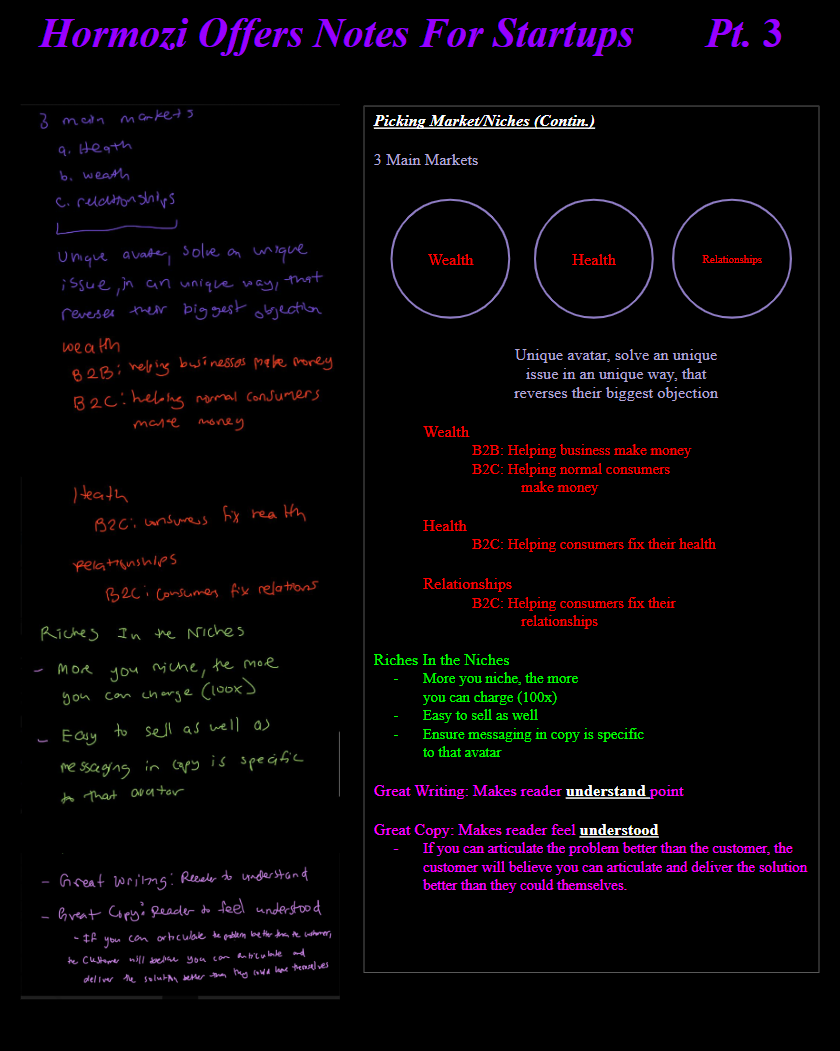 Hormozi Offers Notes For Startups Pt. 3
3 main markets
a. Heath
b. weath
c. relationships
Unique avatar, solve an unique
issue, in an unique way, that
reverses their biggest objection
weath
B2B: helping businesses make money
B2C: helping normal consumers
make money
Heath
B2C: consumers fix health
relationships
B2C: consumer fix relations
Riches In the Niches
- More you niche, the more
you can charge (100x)
- Easy to sell as well as
messaging in copy is specific
to that avatar
- Great writing: Reader to understand
- Great Copy: Reader to feel understood
- If you can articulate the problem better than the customer,
the customer will believe you can articulate and
deliver the solution better than they could have themselves
Picking Market/Niches (Contin.)
3 Main Markets
Wealth
Health
Relationships
Unique avatar, solve an unique
issue in an unique way, that
reverses their biggest objection
Wealth
B2B: Helping business make money
B2C: Helping normal consumers
make money
Health
B2C: Helping consumers fix their health
Relationships
B2C: Helping consumers fix their
relationships
Riches In the Niches
- More you niche, the more
you can charge (100x)
- Easy to sell as well
- Ensure messaging in copy is specific
to that avatar
Great Writing: Makes reader understand point
Great Copy: Makes reader feel understood
- If you can articulate the problem better than the customer, the
customer will believe you can articulate and deliver the solution
better than they could themselves.